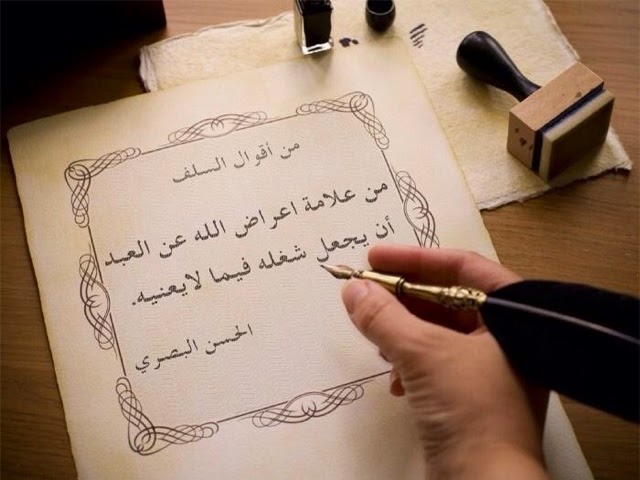 من أقوال السلف
من علامة اعراض الله عن العبد
أن يجعل شغله فيما لايعنيه.
الحسن البصري